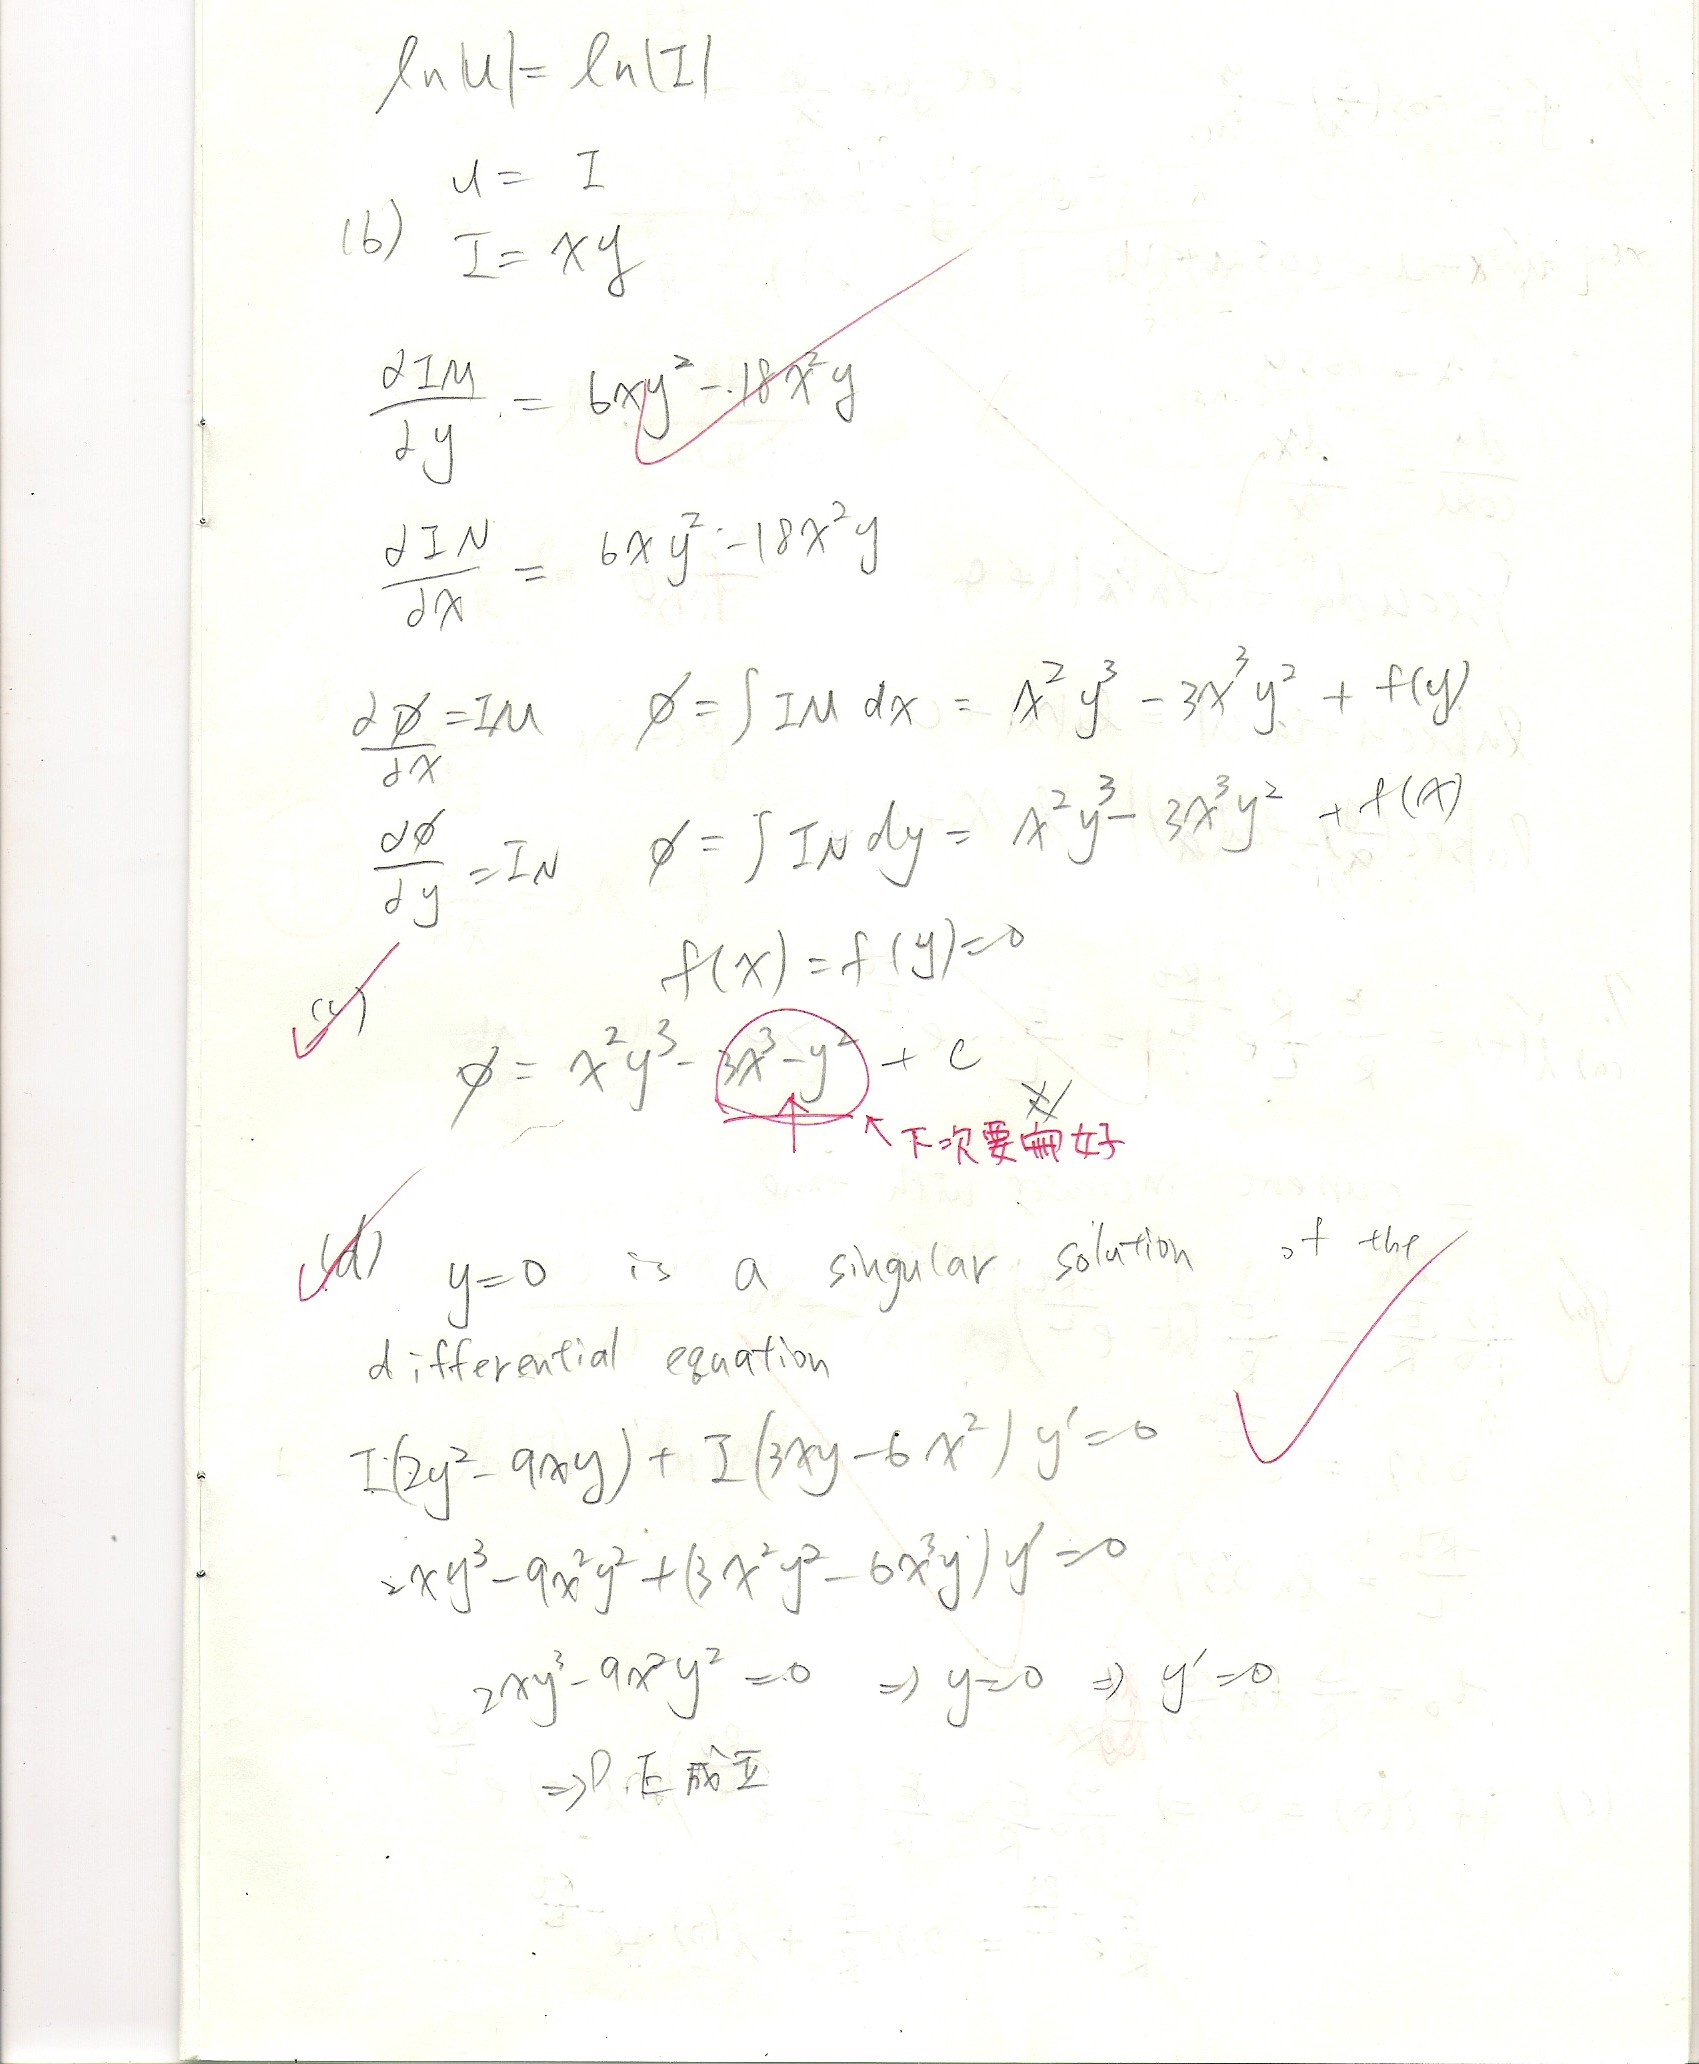 ln|u| = ln|I|
u = I
(b) I = xy
∂IM/∂y = 6xy² - 18x²y
∂IN/∂x = 6xy² - 18x²y
∂ϕ/∂x = IM ϕ = ∫ IM dx = x²y³ - 3x³y² + f(y)
∂ϕ/∂y = IN ϕ = ∫ IN dy = x²y³ - 3x³y² + f(x)
f(x) = f(y) = 0
(c)
ϕ = x²y³ - 3x³-y² + c
下次要寫好
(d) y=0 is a singular solution of the
differential equation
I(2y² - 9xy) + I(3xy - 6x²) y' = 0
2xy³ - 9x²y² + (3x²y² - 6x³y) y' = 0
2xy³ - 9x²y² = 0 ⇒ y=0 ⇒ y'=0
⇒ D.E 成立